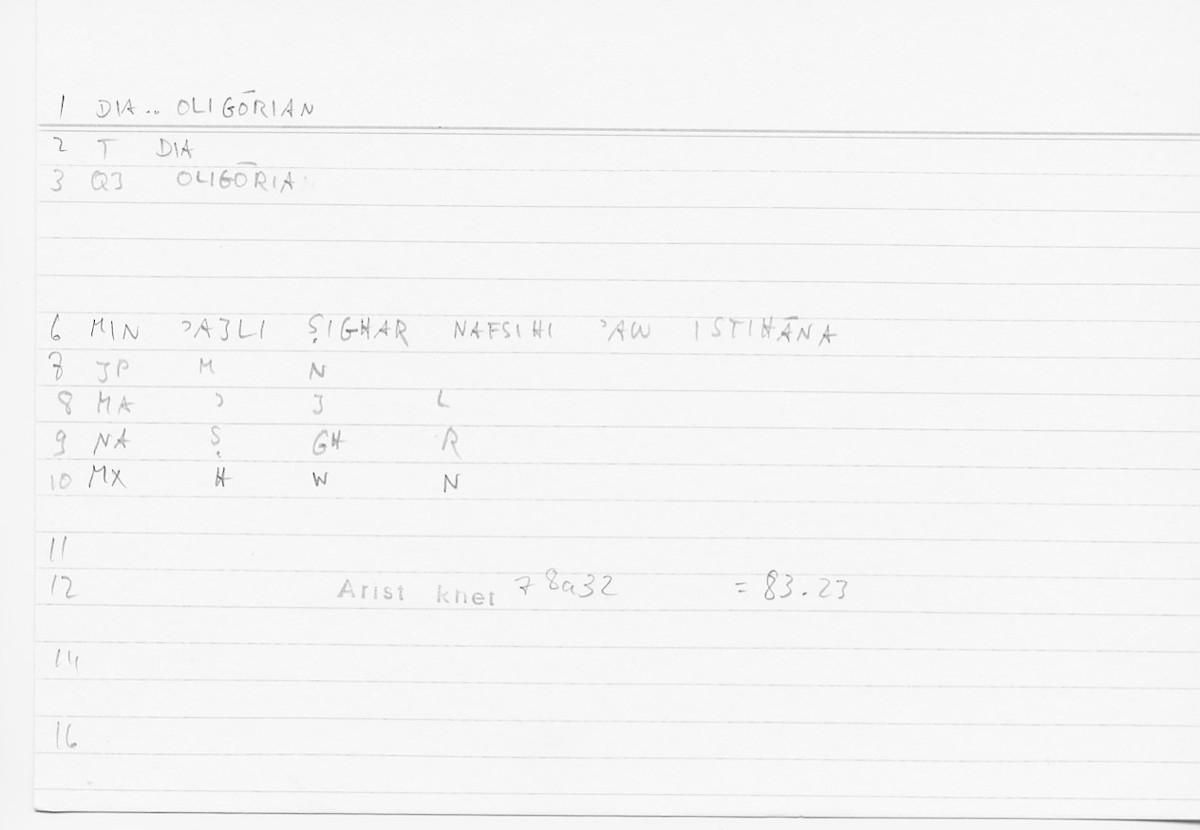 1 DIA.. OLIGŌRIAN
2 T DIA
3 QJ OLIGŌRIA
6 MIN ʾAJLI ṢIGHAR NAFSIHI ʾAW ISTIHĀNA
7 JP M N
8 MA ʾ J L
9 NA Ṣ GH R
10 MX H W N
11
12 Arist rhet 78a32 = 83.23
14
16